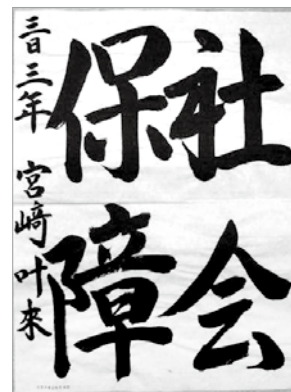 社会
保障
三日三年 宮﨑叶來